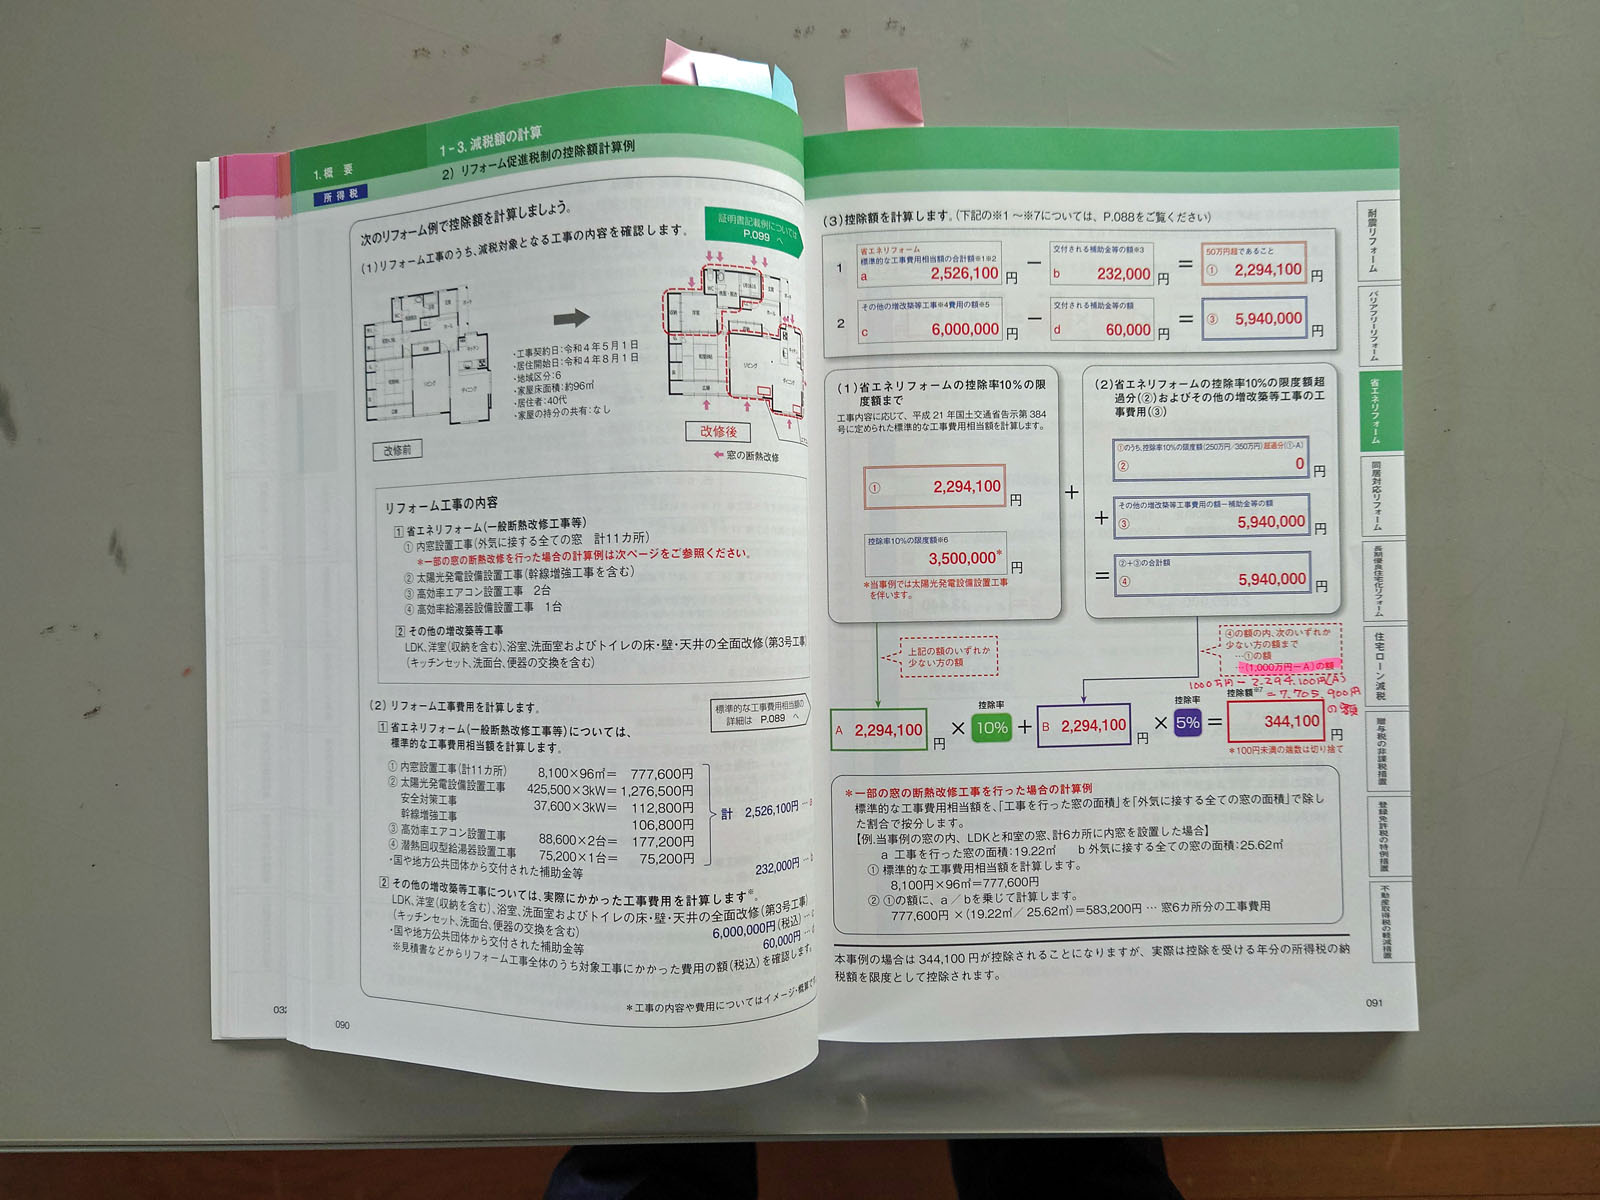 1. 概 要
1-3. 減税額の計算
2）リフォーム促進税制の控除額計算例
所 得 税
次のリフォーム例で控除額を計算しましょう。
証明書記載例については
P.099 へ
（1）リフォーム工事のうち、減税対象となる工事の内容を確認します。
・工事契約日：令和４年５月１日
・居住開始日：令和４年８月１日
・地域区分：6
・家屋床面積：約96㎡
・居住者：40代
・家屋の持分の共有：なし
改修前
改修後
窓の断熱改修
リフォーム工事の内容
1 省エネリフォーム（一般断熱改修工事等）
① 内窓設置工事（外気に接する全ての窓　計11カ所）
＊一部の窓の断熱改修を行った場合の計算例は次ページをご参照ください。
② 太陽光発電設備設置工事（幹線増強工事を含む）
③ 高効率エアコン設置工事　2台
④ 高効率給湯器設備設置工事　1台
2 その他の増改築等工事
LDK、洋室（収納を含む）、浴室、洗面室およびトイレの床・壁・天井の全面改修（第3号工事）
（キッチンセット、洗面台、便器の交換を含む）
（2）リフォーム工事費用を計算します。
標準的な工事費用相当額の
詳細は P.089 へ
1 省エネリフォーム（一般断熱改修工事等）については、
標準的な工事費用相当額を計算します。
① 内窓設置工事（計11カ所） 8,100×96㎡＝ 777,600円
② 太陽光発電設備設置工事 425,500×3kW＝1,276,500円
安全対策工事 37,600×3kW＝ 112,800円
幹線増強工事 106,800円
計 2,526,100円 …
③ 高効率エアコン設置工事 88,600×2台＝ 177,200円
④ 潜熱回収型給湯器設置工事 75,200×1台＝ 75,200円
・国や地方公共団体から交付された補助金等 232,000円 …
2 その他の増改築等工事については、実際にかかった工事費用を計算します※。
LDK、洋室（収納を含む）、浴室、洗面室およびトイレの床・壁・天井の全面改修（第3号工事）
（キッチンセット、洗面台、便器の交換を含む） 6,000,000円（税込）…
・国や地方公共団体から交付された補助金等 60,000円 …
※見積書などからリフォーム工事全体のうち対象工事にかかった費用の額（税込）を確認します。
＊工事の内容や費用についてはイメージ・概算で
032
090
（3）控除額を計算します。（下記の※1～※7については、P.088をご覧ください）
1
省エネリフォーム
標準的な工事費用相当額の合計額※1※2
a 2,526,100 円
－
交付される補助金等の額※3
b 232,000 円
＝
50万円超であること
① 2,294,100 円
2
その他の増改築等工事※4費用の額※5
c 6,000,000 円
－
交付される補助金等の額
d 60,000 円
＝
③ 5,940,000 円
（1）省エネリフォームの控除率10％の限
度額まで
工事内容に応じて、平成 21 年国土交通省告示第 384
号に定められた標準的な工事費用相当額を計算します。
① 2,294,100 円
控除率10％の限度額※6
3,500,000＊ 円
＊当事例では太陽光発電設備設置工事
を伴います。
＋
（2）省エネリフォームの控除率10％の限度額超
過分（②）およびその他の増改築等工事の工
事費用（③）
①のうち、控除率10％の限度額（250万円/350万円）超過分（①-A）
② 0 円
＋
その他の増改築等工事費用の額－補助金等の額
③ 5,940,000 円
＝
②＋③の合計額
④ 5,940,000 円
上記の額のいずれか
少ない方の額
④の額の内、次のいずれか
少ない方の額まで
…①の額
…（1,000万円－A）の額
1000万円－2,294,100円(A)
＝7,705,900円
の額
A 2,294,100 円 × 控除率 10％ ＋ B 2,294,100 円 × 控除率 5％ ＝ 控除額※7 344,100 円
＊100円未満の端数は切り捨て
＊一部の窓の断熱改修工事を行った場合の計算例
標準的な工事費用相当額を、「工事を行った窓の面積」を「外気に接する全ての窓の面積」で除し
た割合で按分します。
【例.当事例の窓の内、LDKと和室の窓、計6カ所に内窓を設置した場合】
a 工事を行った窓の面積：19.22㎡　b 外気に接する全ての窓の面積：25.62㎡
① 標準的な工事費用相当額を計算します。
8,100円×96㎡＝777,600円
② ①の額に、a／bを乗じて計算します。
777,600円 ×（19.22㎡／25.62㎡）＝583,200円 … 窓6カ所分の工事費用
本事例の場合は 344,100 円が控除されることになりますが、実際は控除を受ける年分の所得税の納
税額を限度として控除されます。
091
耐震リフォーム
バリアフリーリフォーム
省エネリフォーム
同居対応リフォーム
長期優良住宅化リフォーム
住宅ローン減税
贈与税の非課税措置
登録免許税の特例措置
不動産取得税の軽減措置